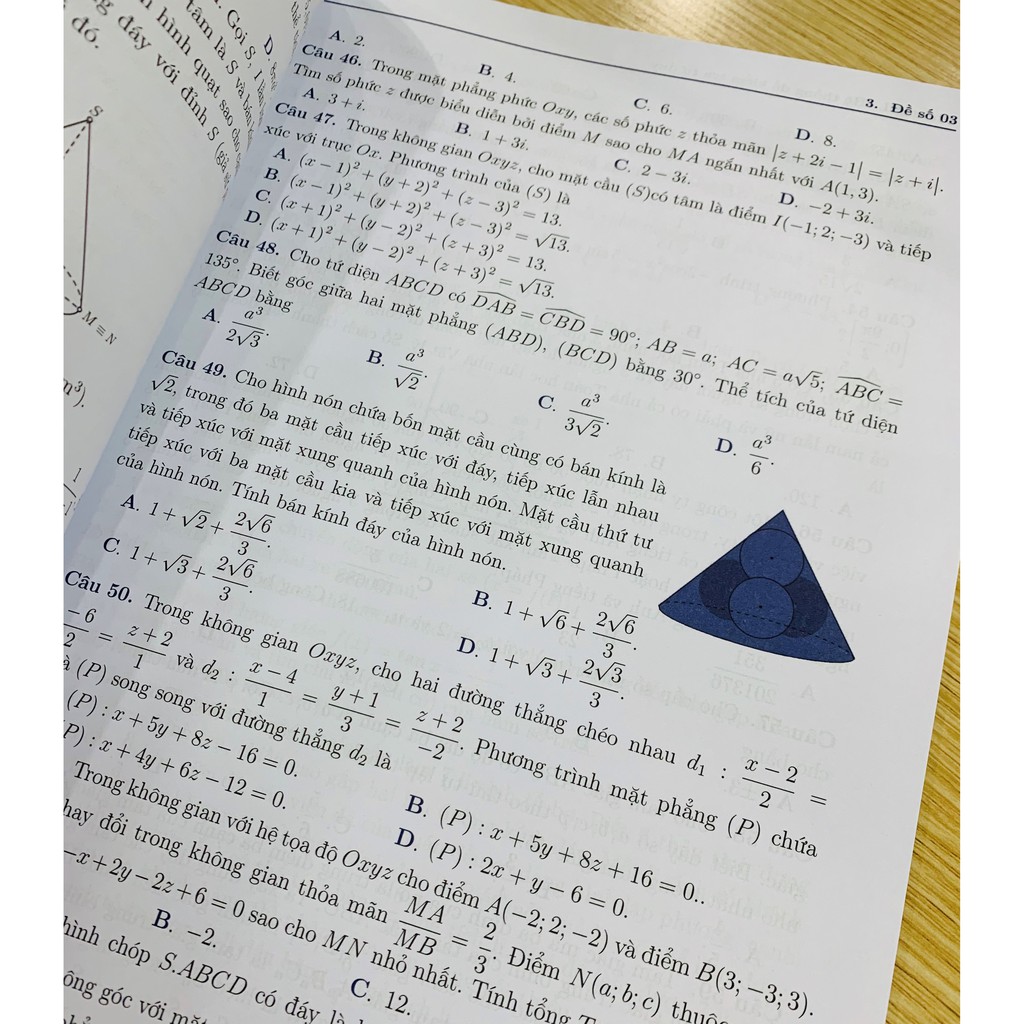 3. Đề số 03
A. 2. B. 4. C. 6. D. 8.
Câu 46. Trong mặt phẳng phức Oxy, các số phức z thỏa mãn |z + 2i − 1| = |z + i|.
Tìm số phức z được biểu diễn bởi điểm M sao cho MA ngắn nhất với A(1, 3).
A. 3 + i. B. 1 + 3i. C. 2 − 3i. D. −2 + 3i.
Câu 47. Trong không gian Oxyz, cho mặt cầu (S)có tâm là điểm I(−1; 2; −3) và tiếp
xúc với trục Ox. Phương trình của (S) là
A. (x − 1)² + (y + 2)² + (z − 3)² = 13.
B. (x − 1)² + (y + 2)² + (z − 3)² = √13.
C. (x + 1)² + (y − 2)² + (z + 3)² = 13.
D. (x + 1)² + (y − 2)² + (z + 3)² = √13.
Câu 48. Cho tứ diện ABCD có DAB = CBD = 90°; AB = a; AC = a√5; ABC =
135°. Biết góc giữa hai mặt phẳng (ABD), (BCD) bằng 30°. Thể tích của tứ diện
ABCD bằng
A. a³/2√3. B. a³/√2. C. a³/3√2. D. a³/6.
Câu 49. Cho hình nón chứa bốn mặt cầu cùng có bán kính là
√2, trong đó ba mặt cầu tiếp xúc với đáy, tiếp xúc lẫn nhau
và tiếp xúc với mặt xung quanh của hình nón. Mặt cầu thứ tư
tiếp xúc với ba mặt cầu kia và tiếp xúc với mặt xung quanh
của hình nón. Tính bán kính đáy của hình nón.
A. 1 + √2 + 2√6/3. B. 1 + √6 + 2√6/3.
C. 1 + √3 + 2√6/3. D. 1 + √3 + 2√3/3.
Câu 50. Trong không gian Oxyz, cho hai đường thẳng chéo nhau d₁ : x − 2/2 =
− 6/2 = z + 2/1 và d₂ : x − 4/1 = y + 1/3 = z + 2/−2. Phương trình mặt phẳng (P) chứa
(P) song song với đường thẳng d₂ là
(P) : x + 5y + 8z − 16 = 0. B. (P) : x + 5y + 8z + 16 = 0..
P) : x + 4y + 6z − 12 = 0. D. (P) : 2x + y − 6 = 0.
Trong không gian với hệ tọa độ Oxyz cho điểm A(−2; 2; −2) và điểm B(3; −3; 3).
hay đổi trong không gian thỏa mãn MA/MB = 2/3. Điểm N(a; b; c) thuộc
−x + 2y − 2z + 6 = 0 sao cho MN nhỏ nhất. Tính tổng T
B. −2. C. 12.
hình chóp S.ABCD có đáy là
ông góc với
D.
Gọi S, I
tâm là S và
hình quạt sao
đáy với đỉnh S
đó.
S
M ≡ N
m³).
1